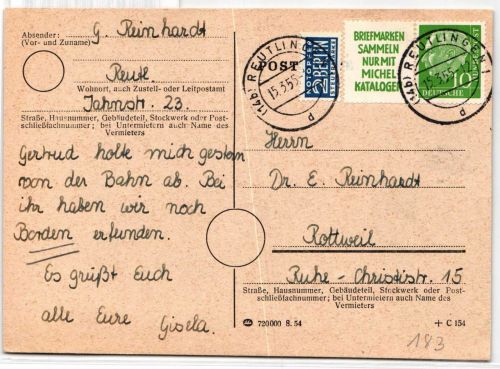 Absender: G. Reinhardt
(Vor- und Zuname)
Reutl.
Wohnort, auch Zustell- oder Leitpostamt
Jahnstr. 23.
Straße, Hausnummer, Gebäudeteil, Stockwerk oder Post-
schließfachnummer; bei Untermietern auch Name des
Vermieters
Gertrud holte mich gestern
von der Bahn ab. Bei
ihr haben wir noch
Borden erfunden.
Es grüßt Euch
alle Eure Gisela.
2 BERLIN
NOTOPFER
STEUERMARKE
BRIEFMARKEN
SAMMELN
NUR MIT
MICHEL
KATALOGEN
10
DEUTSCHE
(14b) REUTLINGEN 1
15.3.55
p
(14b) REUTLINGEN 1
p
POST
Herrn
Dr. E. Reinhardt
Rottweil
Ruhe-Christistr. 15
Straße, Hausnummer, Gebäudeteil, Stockwerk oder Post-
schließfachnummer; bei Untermietern auch Name des
Vermieters
720000 8. 54
+ C 154
183